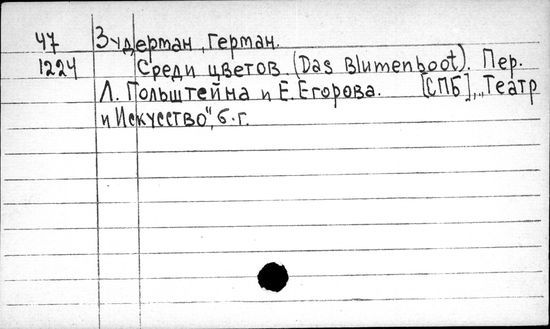 47 Зудерман, Герман.
1224 Среди цветов. (Das Blumenboot). Пер.
Л. Гольштейна и Е. Егорова. [СПБ], „Театр
и Искусство", б.г.